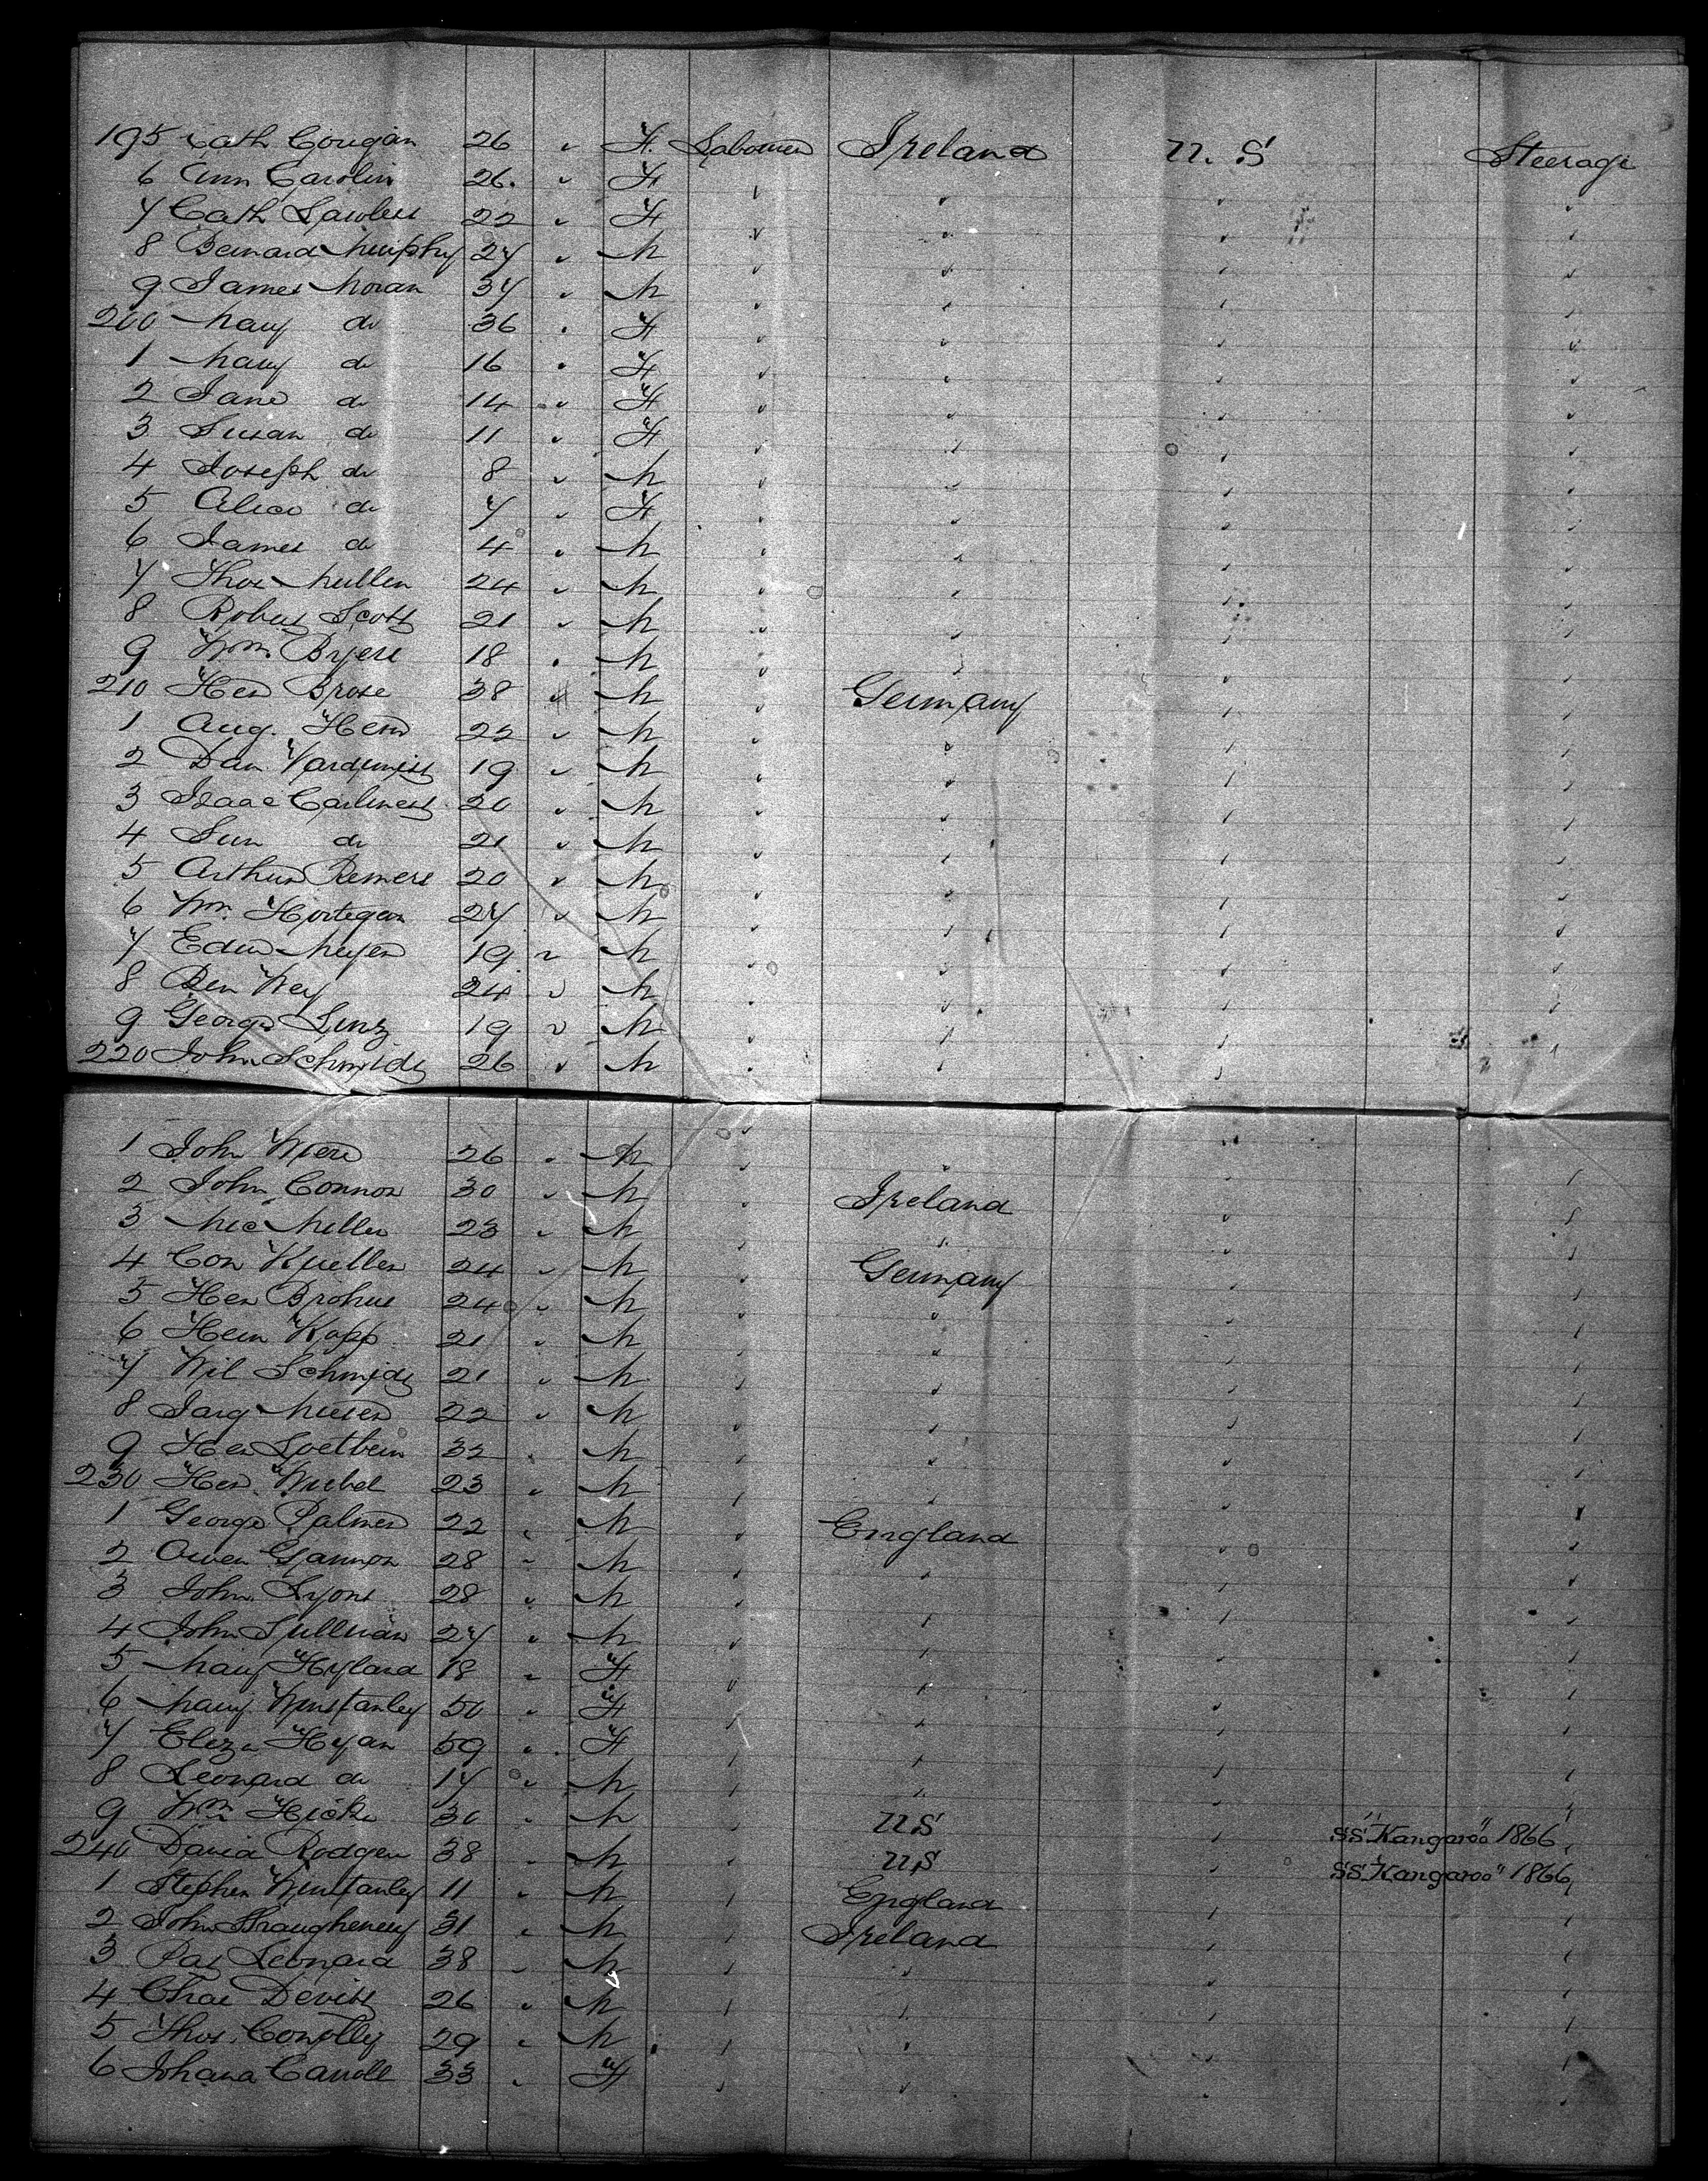 195 Cath Gougan 26 " F. Labourer Ireland U.S Steerage
6 Ann Carolin 26. " F " " " "
7 Cath Lawless 22 " F " " " "
8 Bernard Murphy 27 " M " " " "
9 James Moran 37 " M " " " "
200 Mary do 36 " F " " " "
1 Mary do 16 " F " " " "
2 Jane do 14 " F " " " "
3 Susan do 11 " F " " " "
4 Joseph do 8 " M " " " "
5 Alice do 7 " F " " " "
6 James do 4 " M " " " "
7 Thos Mullen 24 " M " " " "
8 Robert Scott 21 " M " " " "
9 Wm. Byers 18 " M " " " "
210 Hen Brose 38 " M " Germany " "
1 Aug. Hern 22 " M " " " "
2 Dan 19 " M " " " "
3 Isaac 20 " M " " " "
4 do 21 " M " " " "
5 Arthur Remers 20 " M " " " "
6 Wm. 27 " M " " " "
7 Edw Meyer 19 " M " " " "
8 Ben Wey 24 " M " " " "
9 George Linz 19 " M " " " "
220 John Schmidt 26 " M " " " "
1 John 26 " M " " " "
2 John Connor 30 " M " Ireland " "
3 Mic Miller 23 " M " " " "
4 Con Kueller 24 " M " Germany " "
5 Hen Brohus 24 " M " " " "
6 Hein Kopp 21 " M " " " "
7 Wil Schmidt 21 " M " " " "
8 22 " M " " " "
9 Hen 32 " M " " " "
230 Hen. Wiebel 23 " M " " " "
1 George Palmer 22 " M " England " "
2 Owen Gannon 28 " M " " " "
3 John Lyons 28 " M " " " "
4 John Sullivan 27 " M " " " "
5 Mary Hyland 18 " F " " " "
6 Mary Winstanley 50 " F " " " "
7 Eliza Hyan 59 " F " " " "
8 Leonard do 17 " M " " " "
9 Wm Hicks 30 " M " U S " SS "Kangaroo" 1866 "
240 David Rodgers 38 " M " U S " SS "Kangaroo" 1866 "
1 Stephen Winstanley 11 " M " England " "
2 John Shaugheney 31 " M " Ireland " "
3 Pat Leonard 38 " M " " " "
4 Chas Devitt 26 " M " " " "
5 Thos. Conolly 29 " M " " " "
6 Johana Carroll 33 " F " " " "